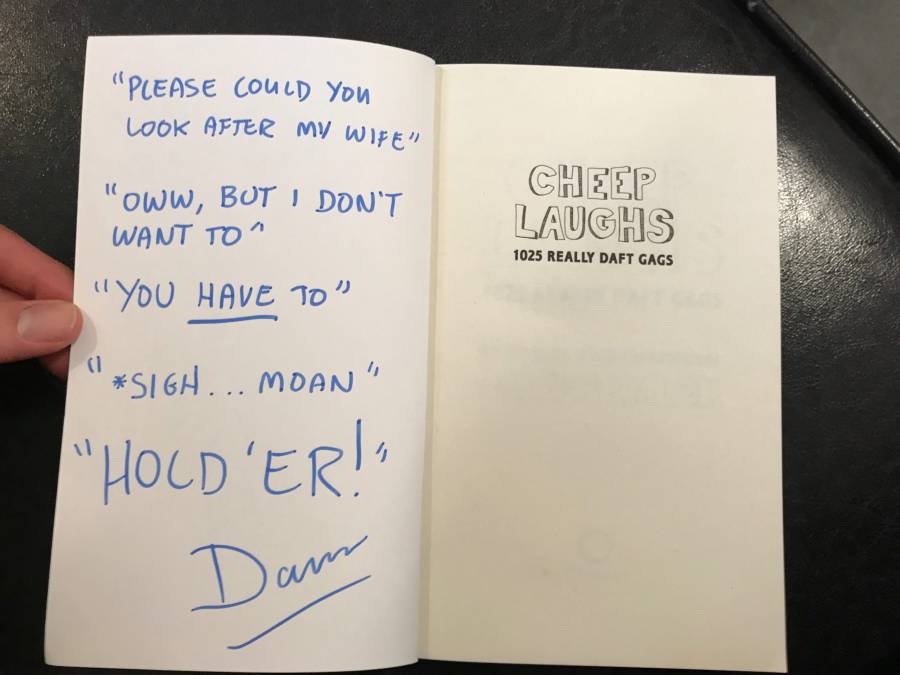 "PLEASE COULD YOU
LOOK AFTER MY WIFE"
"OWW, BUT I DON'T
WANT TO"
"YOU HAVE TO"
"*SIGH... MOAN"
"HOLD 'ER!"
CHEEP
LAUGHS
1025 REALLY DAFT GAGS